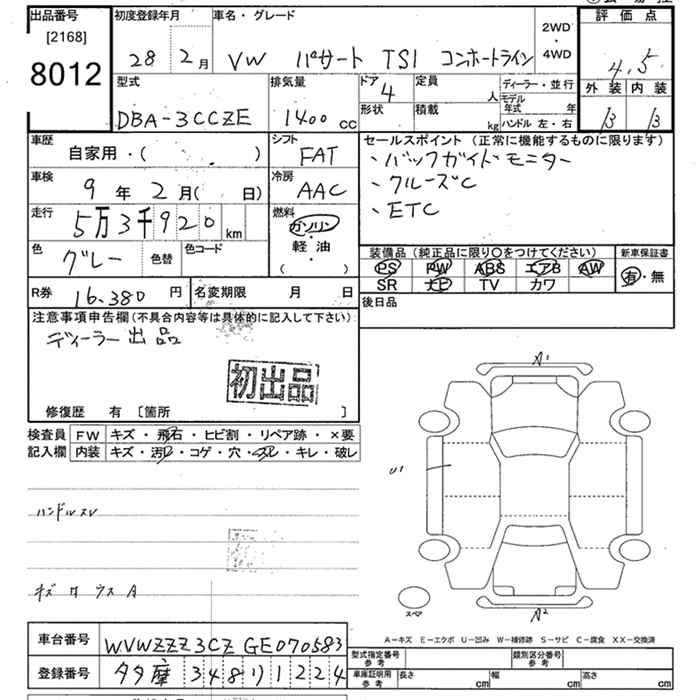 出品番号
[2168]
8012
初度登録年月
28 2月
車名・グレード
VW パサート TSI コンホートライン
2WD
・
4WD
評価点
4.5
外装 内装
B B
型式
DBA-3CCZE
排気量
1400 cc
ドア
4
定員
人
形状
積載
kg
ディーラー・並行
モデル
年式 年
ハンドル 左・右
車歴
自家用・( )
シフト
FAT
車検
9年 2月( 日)
冷房
AAC
走行
5万3千920 km
燃料
ガソリン
・
軽・油
( )
色
グレー
色替
色コード
R券
16,380 円
名変期限 月 日
セールスポイント (正常に機能するものに限ります)
、バックガイドモニター
、クルーズC
、ETC
装備品 (純正品に限り○をつけてください)
PS PW ABS エアB AW
SR ナビ TV カワ
新車保証書
有・無
後日品
注意事項申告欄(不具合内容等は具体的に記入して下さい)
ディーラー出品
初出品
修復歴 有 [箇所 ]
検査員
記入欄
FW キズ・飛石・ヒビ割・リペア跡・×要
内装 キズ・汚れ・コゲ・穴・スレ・キレ・破レ
ハンドルスレ
A1
U1
A2
スペア
A－キズ E－エクボ U－凹み W－補修跡 S－サビ C－腐食 XX－交換済
車台番号
WVWZZZ3CZ GE070583
登録番号
多摩 348 り 1224
型式指定番号
参考
類別区分番号
参考
車庫証明用
参考
長さ cm
幅 cm
高さ cm